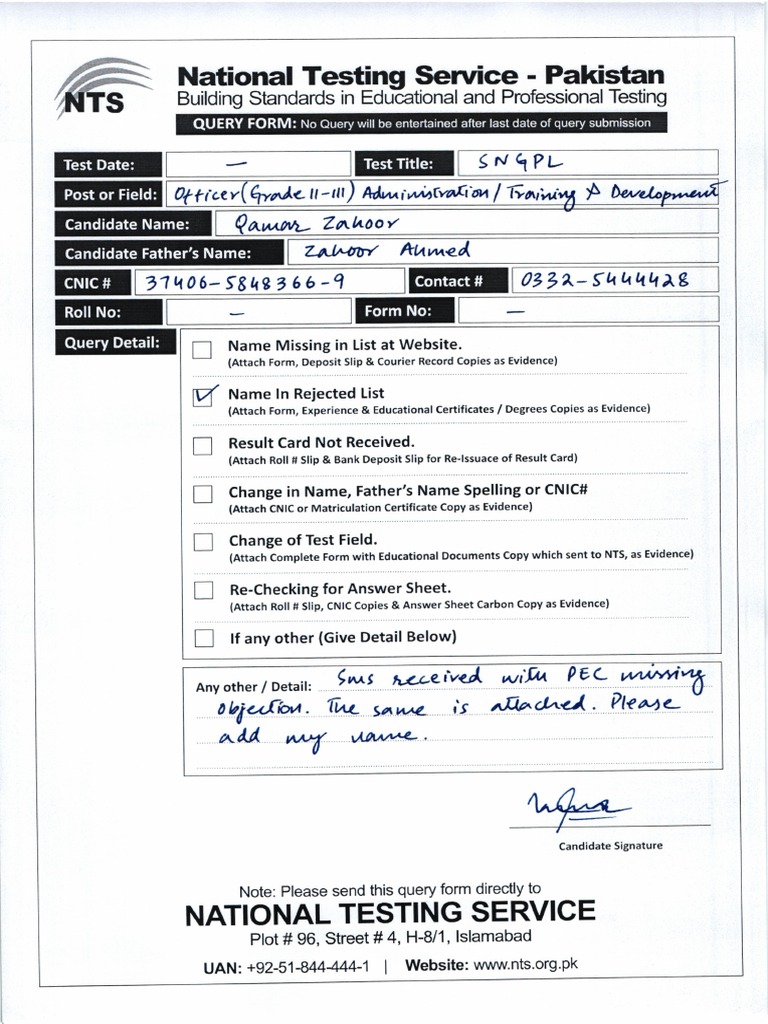 NTS
National Testing Service - Pakistan
Building Standards in Educational and Professional Testing
QUERY FORM: No Query will be entertained after last date of query submission
Test Date: — Test Title: SNGPL
Post or Field: Officer (Grade II-III) Administration / Training & Development
Candidate Name: Qamar Zahoor
Candidate Father's Name: Zahoor Ahmed
CNIC # 37406-5848366-9 Contact # 0332-5444428
Roll No: — Form No: —
Query Detail:
Name Missing in List at Website.
(Attach Form, Deposit Slip & Courier Record Copies as Evidence)
Name In Rejected List
(Attach Form, Experience & Educational Certificates / Degrees Copies as Evidence)
Result Card Not Received.
(Attach Roll # Slip & Bank Deposit Slip for Re-Issuace of Result Card)
Change in Name, Father's Name Spelling or CNIC#
(Attach CNIC or Matriculation Certificate Copy as Evidence)
Change of Test Field.
(Attach Complete Form with Educational Documents Copy which sent to NTS, as Evidence)
Re-Checking for Answer Sheet.
(Attach Roll # Slip, CNIC Copies & Answer Sheet Carbon Copy as Evidence)
If any other (Give Detail Below)
Any other / Detail: Sms received with PEC missing
objection. The same is attached. Please
add my name.
Candidate Signature
Note: Please send this query form directly to
NATIONAL TESTING SERVICE
Plot # 96, Street # 4, H-8/1, Islamabad
UAN: +92-51-844-444-1 | Website: www.nts.org.pk